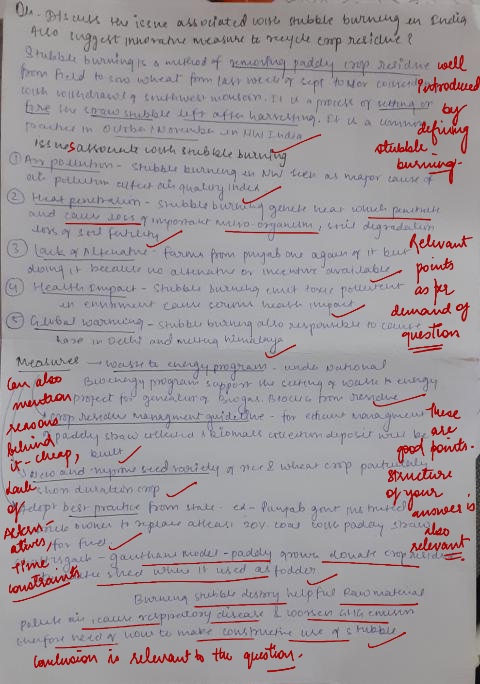 Qn. Discuss the issue associated with stubble burning in India
Also suggest innovative measure to recycle crop residue?
Stubble burning is a method of removing paddy crop residue
from field to sow wheat from last week of Sept to Nov
with withdrawl of southwest monsoon. It is a process of setting on
fire the straw stubble left after harvesting. It is a common
practice in October November in NW India
well
introduced
by
defining
stubble
burning.
issues associate with stubble burning
① Air pollution - stubble burning in NW seen as major cause of
air pollution effect air quality index
② Heat penetration - stubble burning generate heat which penetrate
and cause loss of important micro-organism, soil degradation
loss of soil fertility
③ Lack of Alternative - farms from punjab one again of it but
doing it because no alternative or incentive available
④ Health Impact - stubble burning emit toxic pollutent
in envirnment cause serious health impact
⑤ Global warming - stubble burning also responsible to cause
haze in Delhi and melting himalaya
Relevant
points
as per
demand of
question
Measures → waste to energy program - under National
Bioenergy program support the setting of waste to energy
project for generation of biogas. Biocng from residue
crop residue managment guideline - for efficient managment
of paddy straw collected & biomass collection deposit will be
built
New and improve seed variety of rice & wheat crop particularly
short duration crop
Adopt best practice from state - ex - Punjab govt instructed
owner to replace atleast 20% coal with paddy straw
for fuel
gauthans model - paddy grower donate crop residue
when it used as fodder
can also
mention
reasons
behind
it - cheap,
Lack
of
altern-
atives,
time
constraints
These
are
good points.
structure
of your
answer is
also
relevant.
Burning stubble destroy helpful Raw material
pollute air, cause respiratory disease & worsen GHG emission
therefore need of hour to make constructive use of stubble
conclusion is relevant to the question.